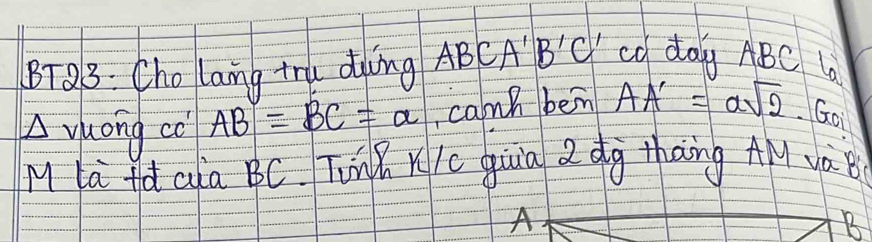 BT23: Cho lăng trụ đứng ABCA'B'C' có đáy ABC là
Δ vuông có AB = BC = a, cạnh bên AA' = a√2. Gọi
M là tđ của BC. Tính K/c giữa 2 đg thẳng AM và B'C
A B